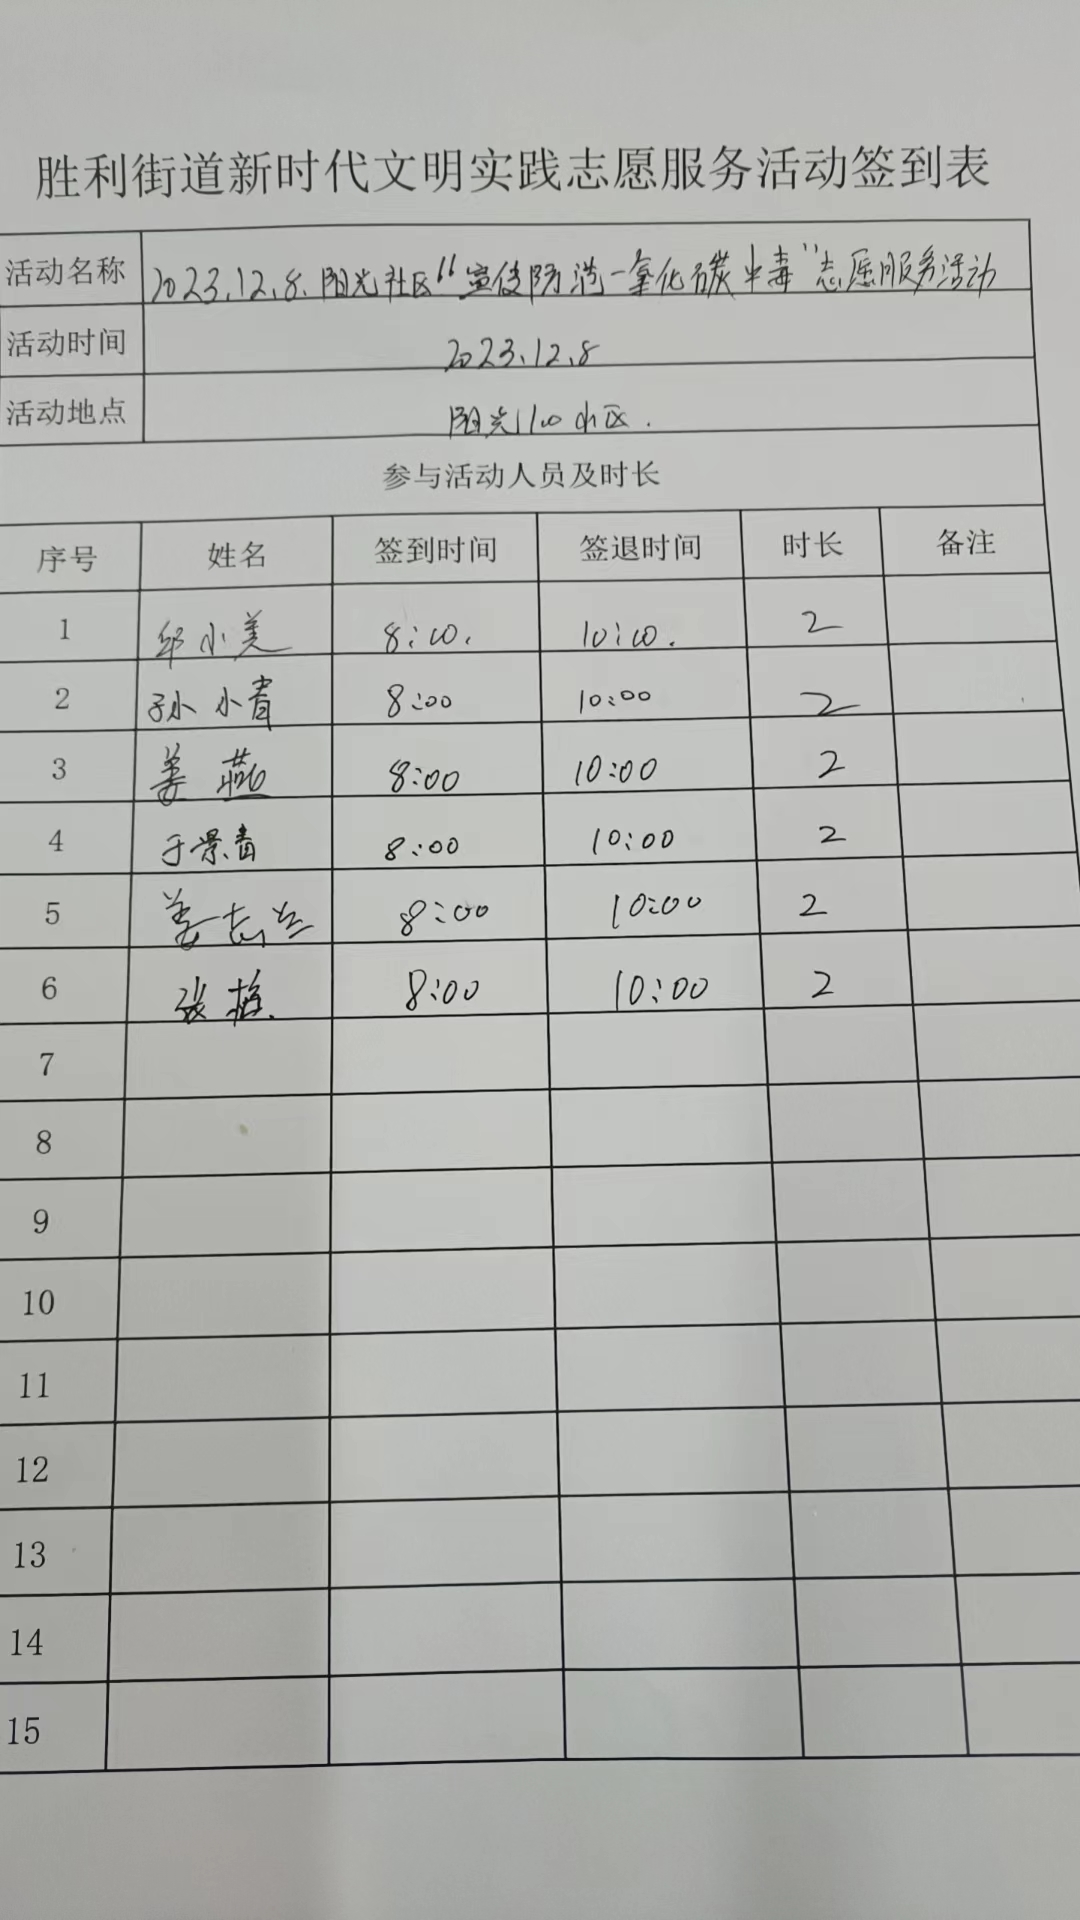 胜利街道新时代文明实践志愿服务活动签到表
活动名称 2023.12.8.阳光社区“宣传防范一氧化碳中毒”志愿服务活动
活动时间 2023.12.8
活动地点 阳光100小区.
参与活动人员及时长
序号 姓名 签到时间 签退时间 时长 备注
1 邱小美 8:00. 10:00. 2
2 孙小青 8:00 10:00 2
3 姜燕 8:00 10:00 2
4 于景青 8:00 10:00 2
5 姜志兰 8:00 10:00 2
6 张梅. 8:00 10:00 2
7
8
9
10
11
12
13
14
15